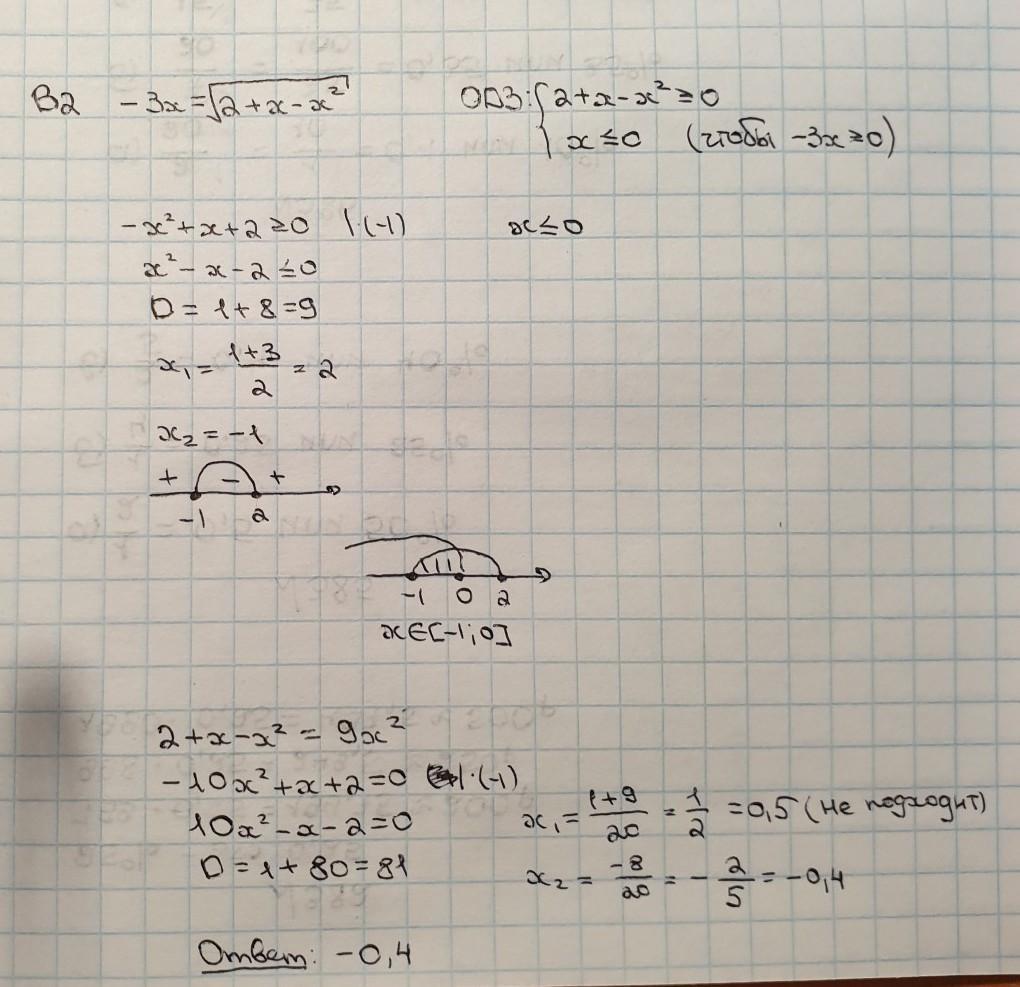 В2 -3x = √(2+x-x²) ОДЗ: { 2+x-x² ≥ 0
x ≤ 0 (чтобы -3x ≥ 0)
-x²+x+2 ≥ 0 |·(-1) x ≤ 0
x²-x-2 ≤ 0
D = 1+8 = 9
x₁ = (1+3)/2 = 2
x₂ = -1
+ - +
-1 2
-1 0 2
x∈[-1;0]
2+x-x² = 9x²
-10x²+x+2=0 |·(-1)
10x²-x-2=0
D = 1+80 = 81
x₁ = (1+9)/20 = 1/2 = 0,5 (не подходит)
x₂ = -8/20 = -2/5 = -0,4
Ответ: -0,4